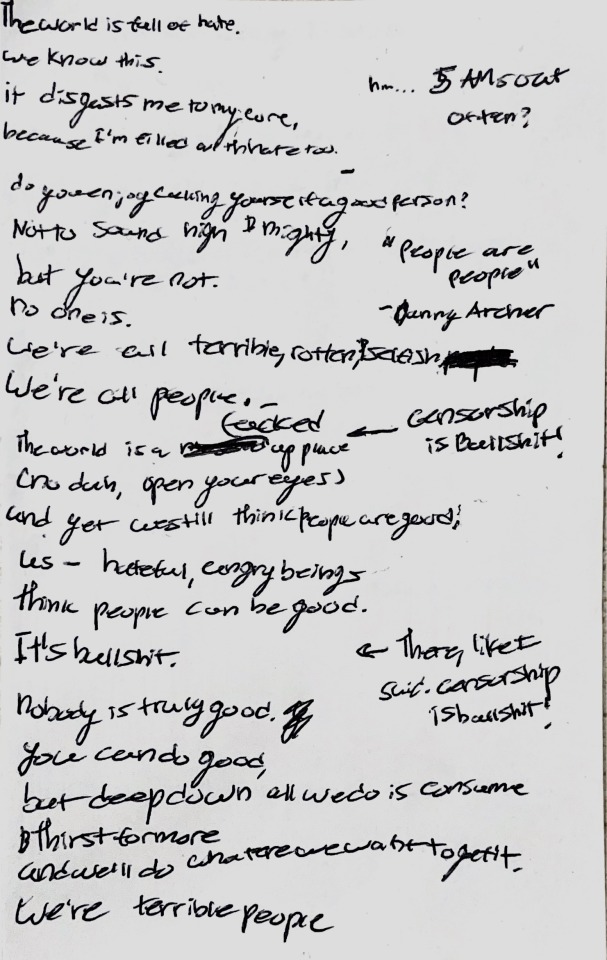 The world is full of hate.
we know this.
it disgusts me to my core,
because I'm filled with hate too.
hm... 5 AM sout
often?
do you enjoy calling yourself a good person?
Not to sound high & mighty,
but you're not.
no one is.
"People are
people"
- Danny Archer
We're all terrible, rotten, & selfish
We're all people.
fucked
The world is a up place
(no duh, open your eyes)
<- censorship
is Bullshit!
and yet we still think people are good;
us - hateful, angry beings
think people can be good.
It's bullshit.
<- There, like I
said. censorship
is bullshit!
Nobody is truly good.
you can do good,
but deep down all we do is consume
& thirst for more
and we'll do whatere we want to get it.
We're terrible people